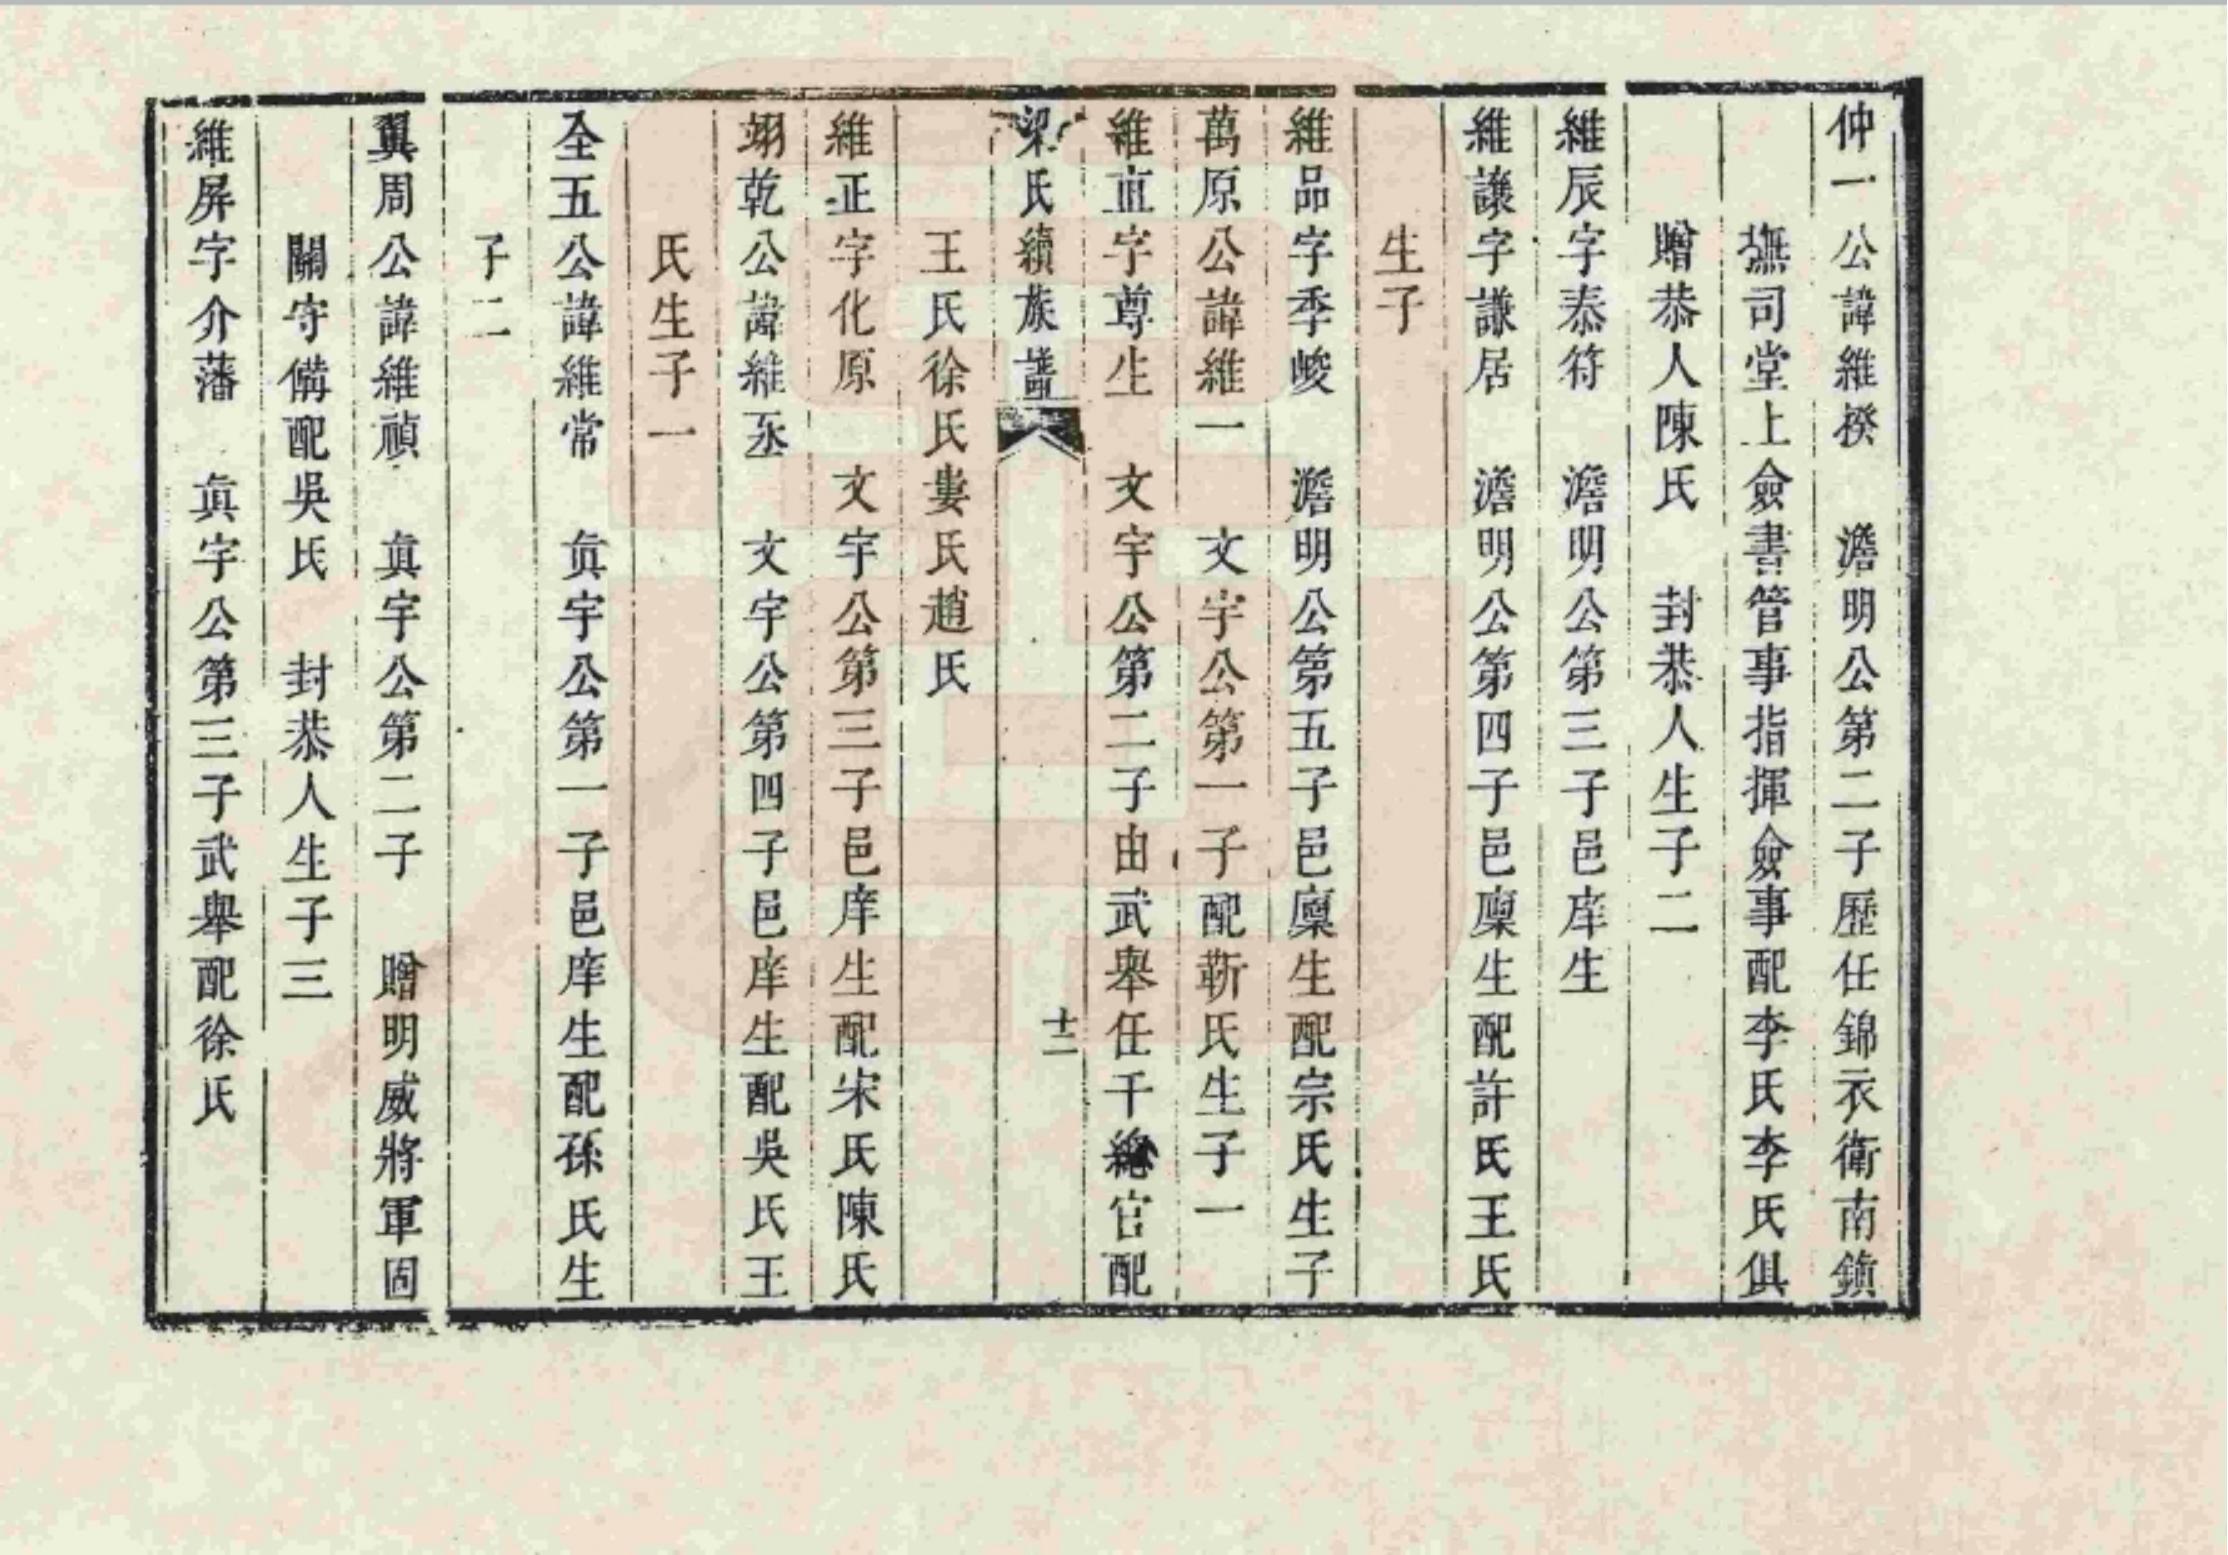 仲一公諱維揆　澹明公第二子歷任錦衣衛南鎮
撫司堂上僉書管事指揮僉事配李氏李氏俱
贈恭人陳氏　封恭人生子二
維辰字泰符　澹明公第三子邑庠生
維讓字謙居　澹明公第四子邑廩生配許氏王氏
生子
維品字季峻　澹明公第五子邑廩生配宗氏生子
萬原公諱維一　文宇公第一子配靳氏生子一
維直字尊生　文宇公第二子由武舉任千總官配
梁氏續族譜
十二
王氏徐氏婁氏趙氏
維正字化原　文宇公第三子邑庠生配宋氏陳氏
翊乾公諱維丞　文宇公第四子邑庠生配吳氏王
氏生子一
全五公諱維常　眞宇公第一子邑庠生配孫氏生
子二
翼周公諱維禎　眞宇公第二子　贈明威將軍固
關守備配吳氏　封恭人生子三
維屏字介藩　眞宇公第三子武舉配徐氏